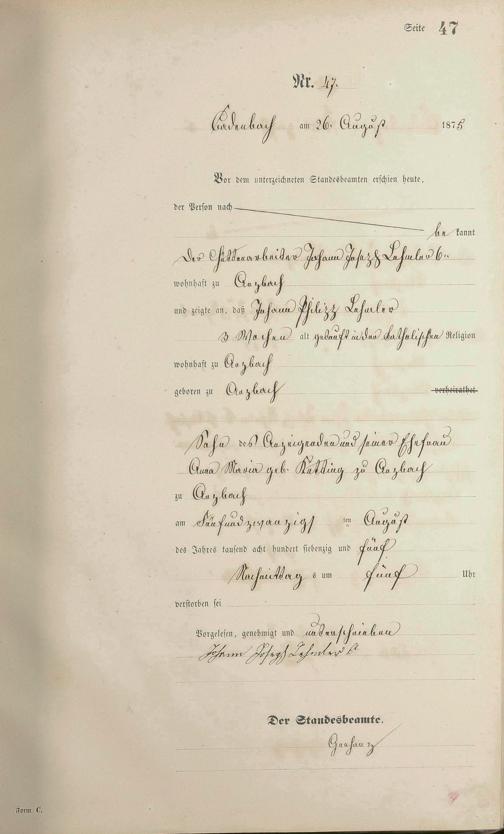 Seite 47
Nr. 47.
Cadenbach am 26. August 1875
Vor dem unterzeichneten Standesbeamten erschien heute,
der Person nach
be kannt
der Hüttenarbeiter Johann Joseph Lehmler 6r
wohnhaft zu Arzbach
und zeigte an, daß Johann Philipp Lehmler
3 Wochen alt getauft in der katholischen Religion
wohnhaft zu Arzbach
geboren zu Arzbach verheirathet
Sohn des Anzeigenden und seiner Ehefrau
Anna Maria geb. zu Arzbach
zu Arzbach
am Fünfundzwanzigs ten August
des Jahres tausend acht hundert siebenzig und fünf
Nachmittag s um fünf Uhr
verstorben sei
Vorgelesen, genehmigt und unterschrieben
Johann Joseph Lehmler 6
Der Standesbeamte.
Form. C.